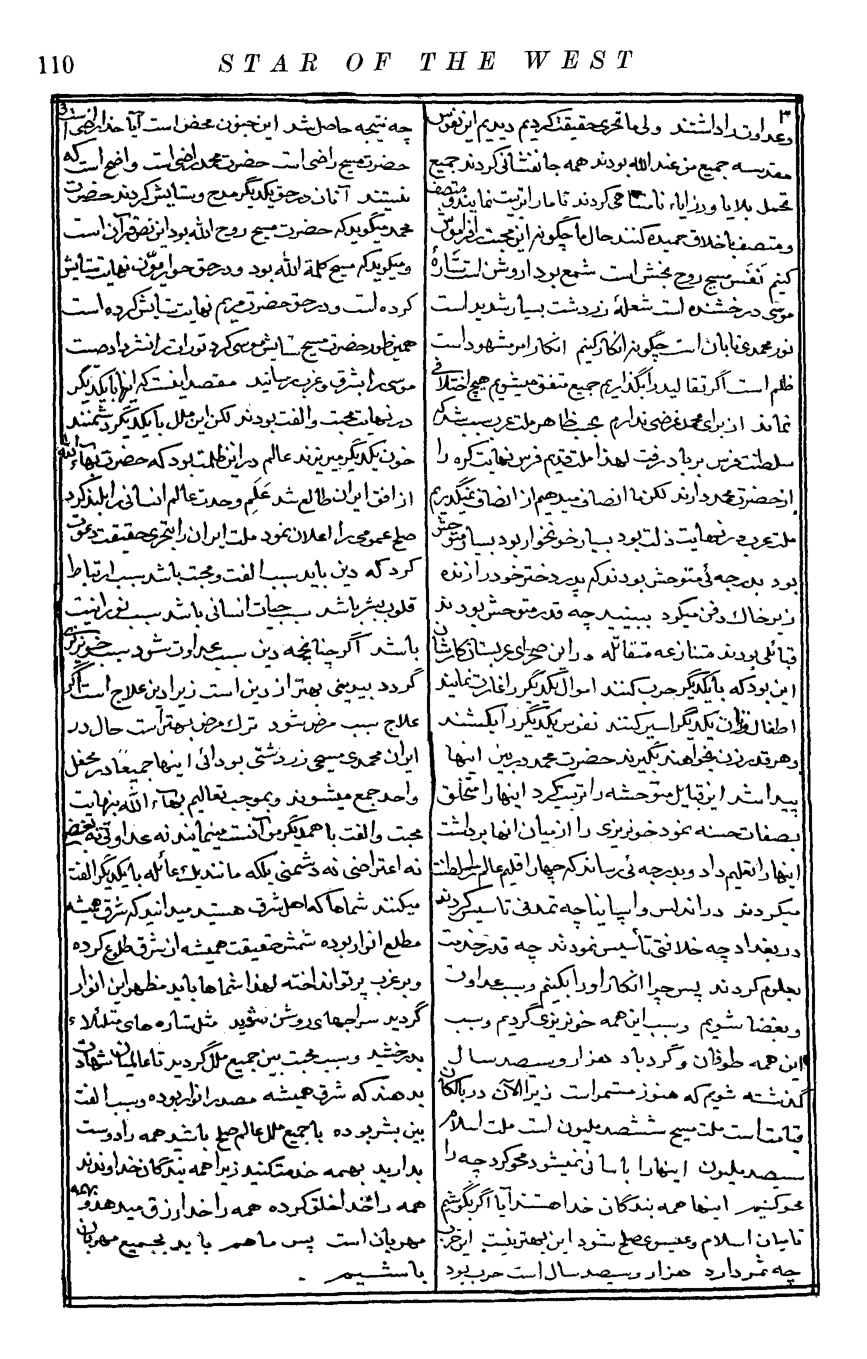 110
STAR OF THE WEST
٣
وعداوت را داشتند ولی ما تحری حقیقت کردیم دیدیم این نفوس
مقدسه جمیع من عند الله بودند همه جانفشانی کردند جمیع
تحمل بلایا و رزایاء نامتناهی کردند تا مارا تربیت نمایند و متصف
و متصف باخلاق حمیده کنند حال ما چگونه این محبت را فراموش
کنیم نفس مسیح روح بخش است شمع بودا روشن است ستارهٔ
موسی درخشنده است شعلهٔ زردشت بسیار شدید است
نور محمدی تابان است چگونه انکار کنیم انکار امر مشهود است
ظلم است اگر تقالید را بگذاریم جمیع متفق میشویم هیچ اختلافی
نماند از برای محمد غرضی نداریم بحسب ظاهر ملت عرب سبب شد که
سلطنت فرس بر باد رفت لهذا ملت قدیم فرس نهایت کره را
از حضرت محمد دارند لکن ما انصاف میدهیم از انصاف نمیگذریم
ملت عرب در نهایت ذلت بود بسیار خونخوار بود بسیار متوحش
بود بدرجه ئی متوحش بودند که پدر دختر خود را زنده
زیر خاک دفن میکرد ببینید چه قدر متوحش بودند
قبائلی بودند متنازعه متقاتله در این صحرای عربستان کارشان
این بود که با یکدیگر حرب کنند اموال یکدیگر را غارت نمایند
اطفال و زنان یکدیگر اسیر کنند نفوس یکدیگر را بکشند
و هر قدر زن بخواهند بگیرند حضرت محمد در بین اینها
پیدا شد این قبایل متوحشه را تربیت کرد اینها را متخلق
بصفات حسنه نمود خونریزی را از میان انها برداشت
اینها را تعلیم داد و بدرجه ئی رساند که چهار اقلیم عالم را سلطنت
میکردند در اندلس و اسپانیا چه تمدنی تاسیس کردند
در بغداد چه خلافتی تأسیس نمودند چه قدر خدمت
بعلوم کردند پس چرا انکار او را بکنیم و سبب عداوت
و بغضا شویم و سبب این همه خونریزی گردیم و سبب
این همه طوفان و گردباد هزار و سیصد سال
گذشته شویم که هنوز مستمر است زیرا الآن در بالکان
قیامت است ملت مسیح ششصد ملیون است ملت اسلام
سیصد ملیون اینها را باسانی نمیشود محو کرد چه را
محو کنیم اینها همه بندگان خدا هستند آیا اگر بکوشیم
تا میان اسلام و عیسوی صلح شود این بهتر نیست این حرب
چه ثمر دارد هزار و سیصد سال است حرب بود
چه نتیجه حاصل شد این جنون محض است آیا خدا راضی است
حضرت مسیح راضی است حضرت محمد راضی است واضح است که
نیستند آنان در حق یکدیگر مدح و ستایش کردند حضرت
محمد میگوید که حضرت مسیح روح الله بود این نص قرآن است
و میگوید که مسیح کلمة الله بود و در حق حواریون نهایت ستایش
کرده است و در حق حضرت مریم نهایت ستایش کرده است
همینطور حضرت مسیح ستایش موسی کرد تورات را نشر داد صیت
موسی را بشرق و غرب رسانید مقصد اینست که اینها با یکدیگر
در نهایت محبت و الفت بودند لکن این ملل با یکدیگر دشمنند
خون یکدیگر میریزند عالم در این ظلمت بود که حضرت بهاء الله
از افق ایران طالع شد علم وحدت عالم انسانی را بلند کرد
صلح عمومی را اعلان نمود ملت ایران را بتحری حقیقت دعوت
کرد که دین باید سبب الفت و محبت باشد سبب ارتباط
قلوب بشر باشد سبب حیات انسانی باشد سبب نورانیت
باشد اگر چنانچه دین سبب عداوت شود سبب خونریزی
گردد بیدینی بهتر از دین است زیرا دین علاج است اگر
علاج سبب مرض شود ترک مرض بهتر است حال در
ایران محمدی مسیحی زردشتی بودائی اینها جمیعًا در محفل
واحد جمع میشوند و بموجب تعالیم بهآء الله بنهایت
محبت و الفت با همدیگر مؤانست مینمایند نه عداوتی نه بغضی
نه اعتراضی نه دشمنی بلکه مانند یک عائله با یکدیگر الفت
میکنند شماها که اهل شرق هستید میدانید که شرق همیشه
مطلع انوار بوده شمش حقیقت همیشه از شرق طلوع کرده
و بر غرب پرتو انداخته لهذا شماها باید مظهر این انوار
گردید سراجهای روشن شوید مثل ستاره های متلئلاء
بدرخشید و سبب محبت بین جمیع ملل گردید تا عالمیان شهادت
بدهند که شرق همیشه مصدر انوار بوده و سبب الفت
بین بشر بوده با جمیع ملل عالم صلح باشد همه را دوست
بدارید بهمه خدمت کنید زیرا همه بندگان خداوندند
همه را خدا خلق کرده همه را خدا رزق میدهد و بهمه
مهربان است پس ما هم باید بجمیع مهربان
باشیم .